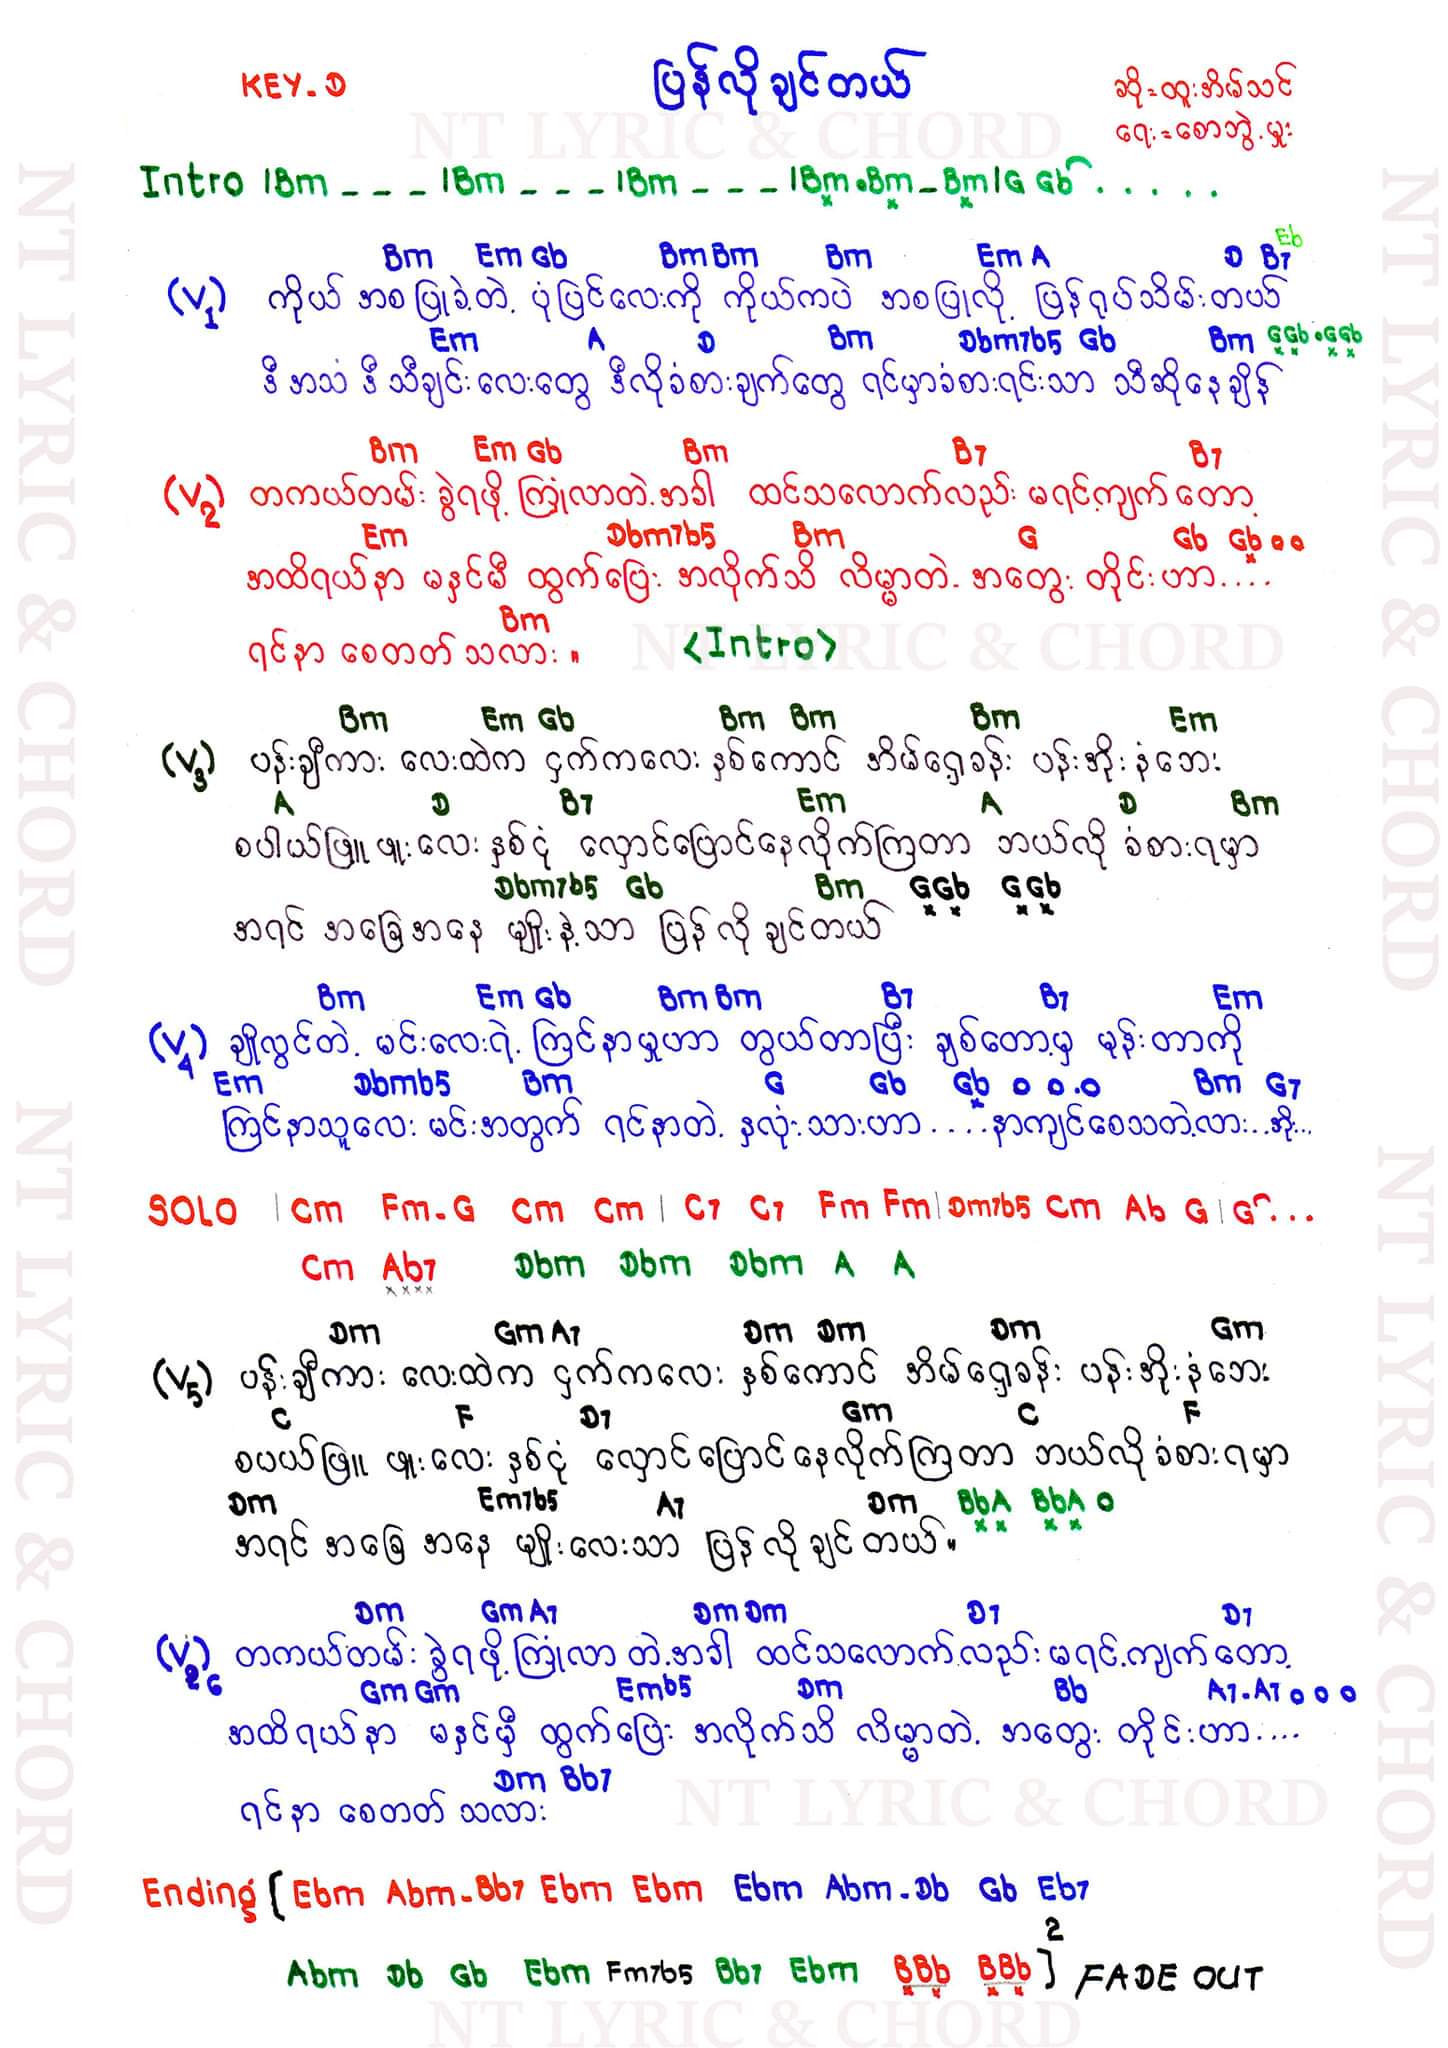 KEY-D
ပြန်လိုချင်တယ်
ဆို=ထူးအိမ်သင်
ရေး=စောဘွဲ့မှူး
NT LYRIC & CHORD
Intro |Bm _ _ _ |Bm _ _ _ |Bm _ _ _ |Bm.Bm_Bm|G Gb . . . . .
Bm Em Gb Bm Bm Bm Em A D B7 Eb
(V1) ကိုယ် အစပြုခဲ့တဲ့ ပုံပြင်လေးကို ကိုယ်ကပဲ အစပြုလို့ ပြန်ရုပ်သိမ်းတယ်
Em A D Bm Dbm7b5 Gb Bm GGb.GGb
ဒီအသံ ဒီသီချင်းလေးတွေ ဒီလိုခံစားချက်တွေ ရင်မှာခံစားရင်းသာ သီဆိုနေချိန်
Bm Em Gb Bm B7 B7
(V2) တကယ်တမ်း ခွဲရဖို့ ကြုံလာတဲ့အခါ ထင်သလောက်လည်း မရင့်ကျက်တော့
Em Dbm7b5 Bm G Gb Gb o o
အထိရယ်နာ မနှင်မီ ထွက်ပြေး အလိုက်သိ လိမ္မာတဲ့ အတွေး တိုင်းဟာ....
Bm
ရင်နာ စေတတ်သလား။ <Intro>
NT LYRIC & CHORD
Bm Em Gb Bm Bm Bm Em
(V3) ပန်းချီကား လေးထဲက ငှက်ကလေး နှစ်ကောင် အိမ်ရှေ့ခန်း ပန်းအိုးနံဘေး
A D B7 Em A D Bm
စပါယ်ဖြူ ဖူးလေး နှစ်ငုံ လှောင်ပြောင်နေလိုက်ကြတာ ဘယ်လို ခံစားရမှာ
Dbm7b5 Gb Bm GGb GGb
အရင် အခြေအနေ မျိုးနဲ့သာ ပြန်လိုချင်တယ်
Bm Em Gb Bm Bm B7 B7 Em
(V4) ချိုလွင်တဲ့ မင်းလေးရဲ့ ကြင်နာမှုဟာ တွယ်တာပြီး ချစ်တော့မှ မုန်းတာကို
Em Dbmb5 Bm G Gb Gb o o.o Bm G7
ကြင်နာသူလေး မင်းအတွက် ရင်နာတဲ့ နှလုံးသားဟာ ....နာကျင်စေသတဲ့လား..အိုး...
SOLO |Cm Fm-G Cm Cm| C7 C7 Fm Fm|Dm7b5 Cm Ab G|G...
Cm Ab7 Dbm Dbm Dbm A A
Dm Gm A7 Dm Dm Dm Gm
(V5) ပန်းချီကား လေးထဲက ငှက်ကလေး နှစ်ကောင် အိမ်ရှေ့ခန်း ပန်းအိုးနံဘေး
C F D7 Gm C F
စပယ်ဖြူ ဖူးလေး နှစ်ငုံ လှောင်ပြောင်နေလိုက်ကြတာ ဘယ်လိုခံစားရမှာ
Dm Em7b5 A7 Dm BbA BbA o
အရင် အခြေ အနေ မျိုးလေးသာ ပြန်လိုချင်တယ်။
Dm Gm A7 Dm Dm D7 D7
(V2)6 တကယ်တမ်း ခွဲရဖို့ ကြုံလာတဲ့အခါ ထင်သလောက်လည်း မရင့်ကျက်တော့
Gm Gm Emb5 Dm Bb A7.A7 o o o
အထိရယ်နာ မနှင်မှီ ထွက်ပြေး အလိုက်သိ လိမ္မာတဲ့ အတွေး တိုင်းဟာ....
Dm Bb7
ရင်နာ စေတတ်သလား
NT LYRIC & CHORD
Ending [Ebm Abm-Bb7 Ebm Ebm Ebm Abm-Db Gb Eb7
Abm Db Gb Ebm Fm7b5 Bb7 Ebm BBb BBb]2 FADE OUT
NT LYRIC & CHORD
NT LYRIC & CHORD
NT LYRIC & CHORD
NT LYRIC & CHORD
NT LYRIC & CHORD